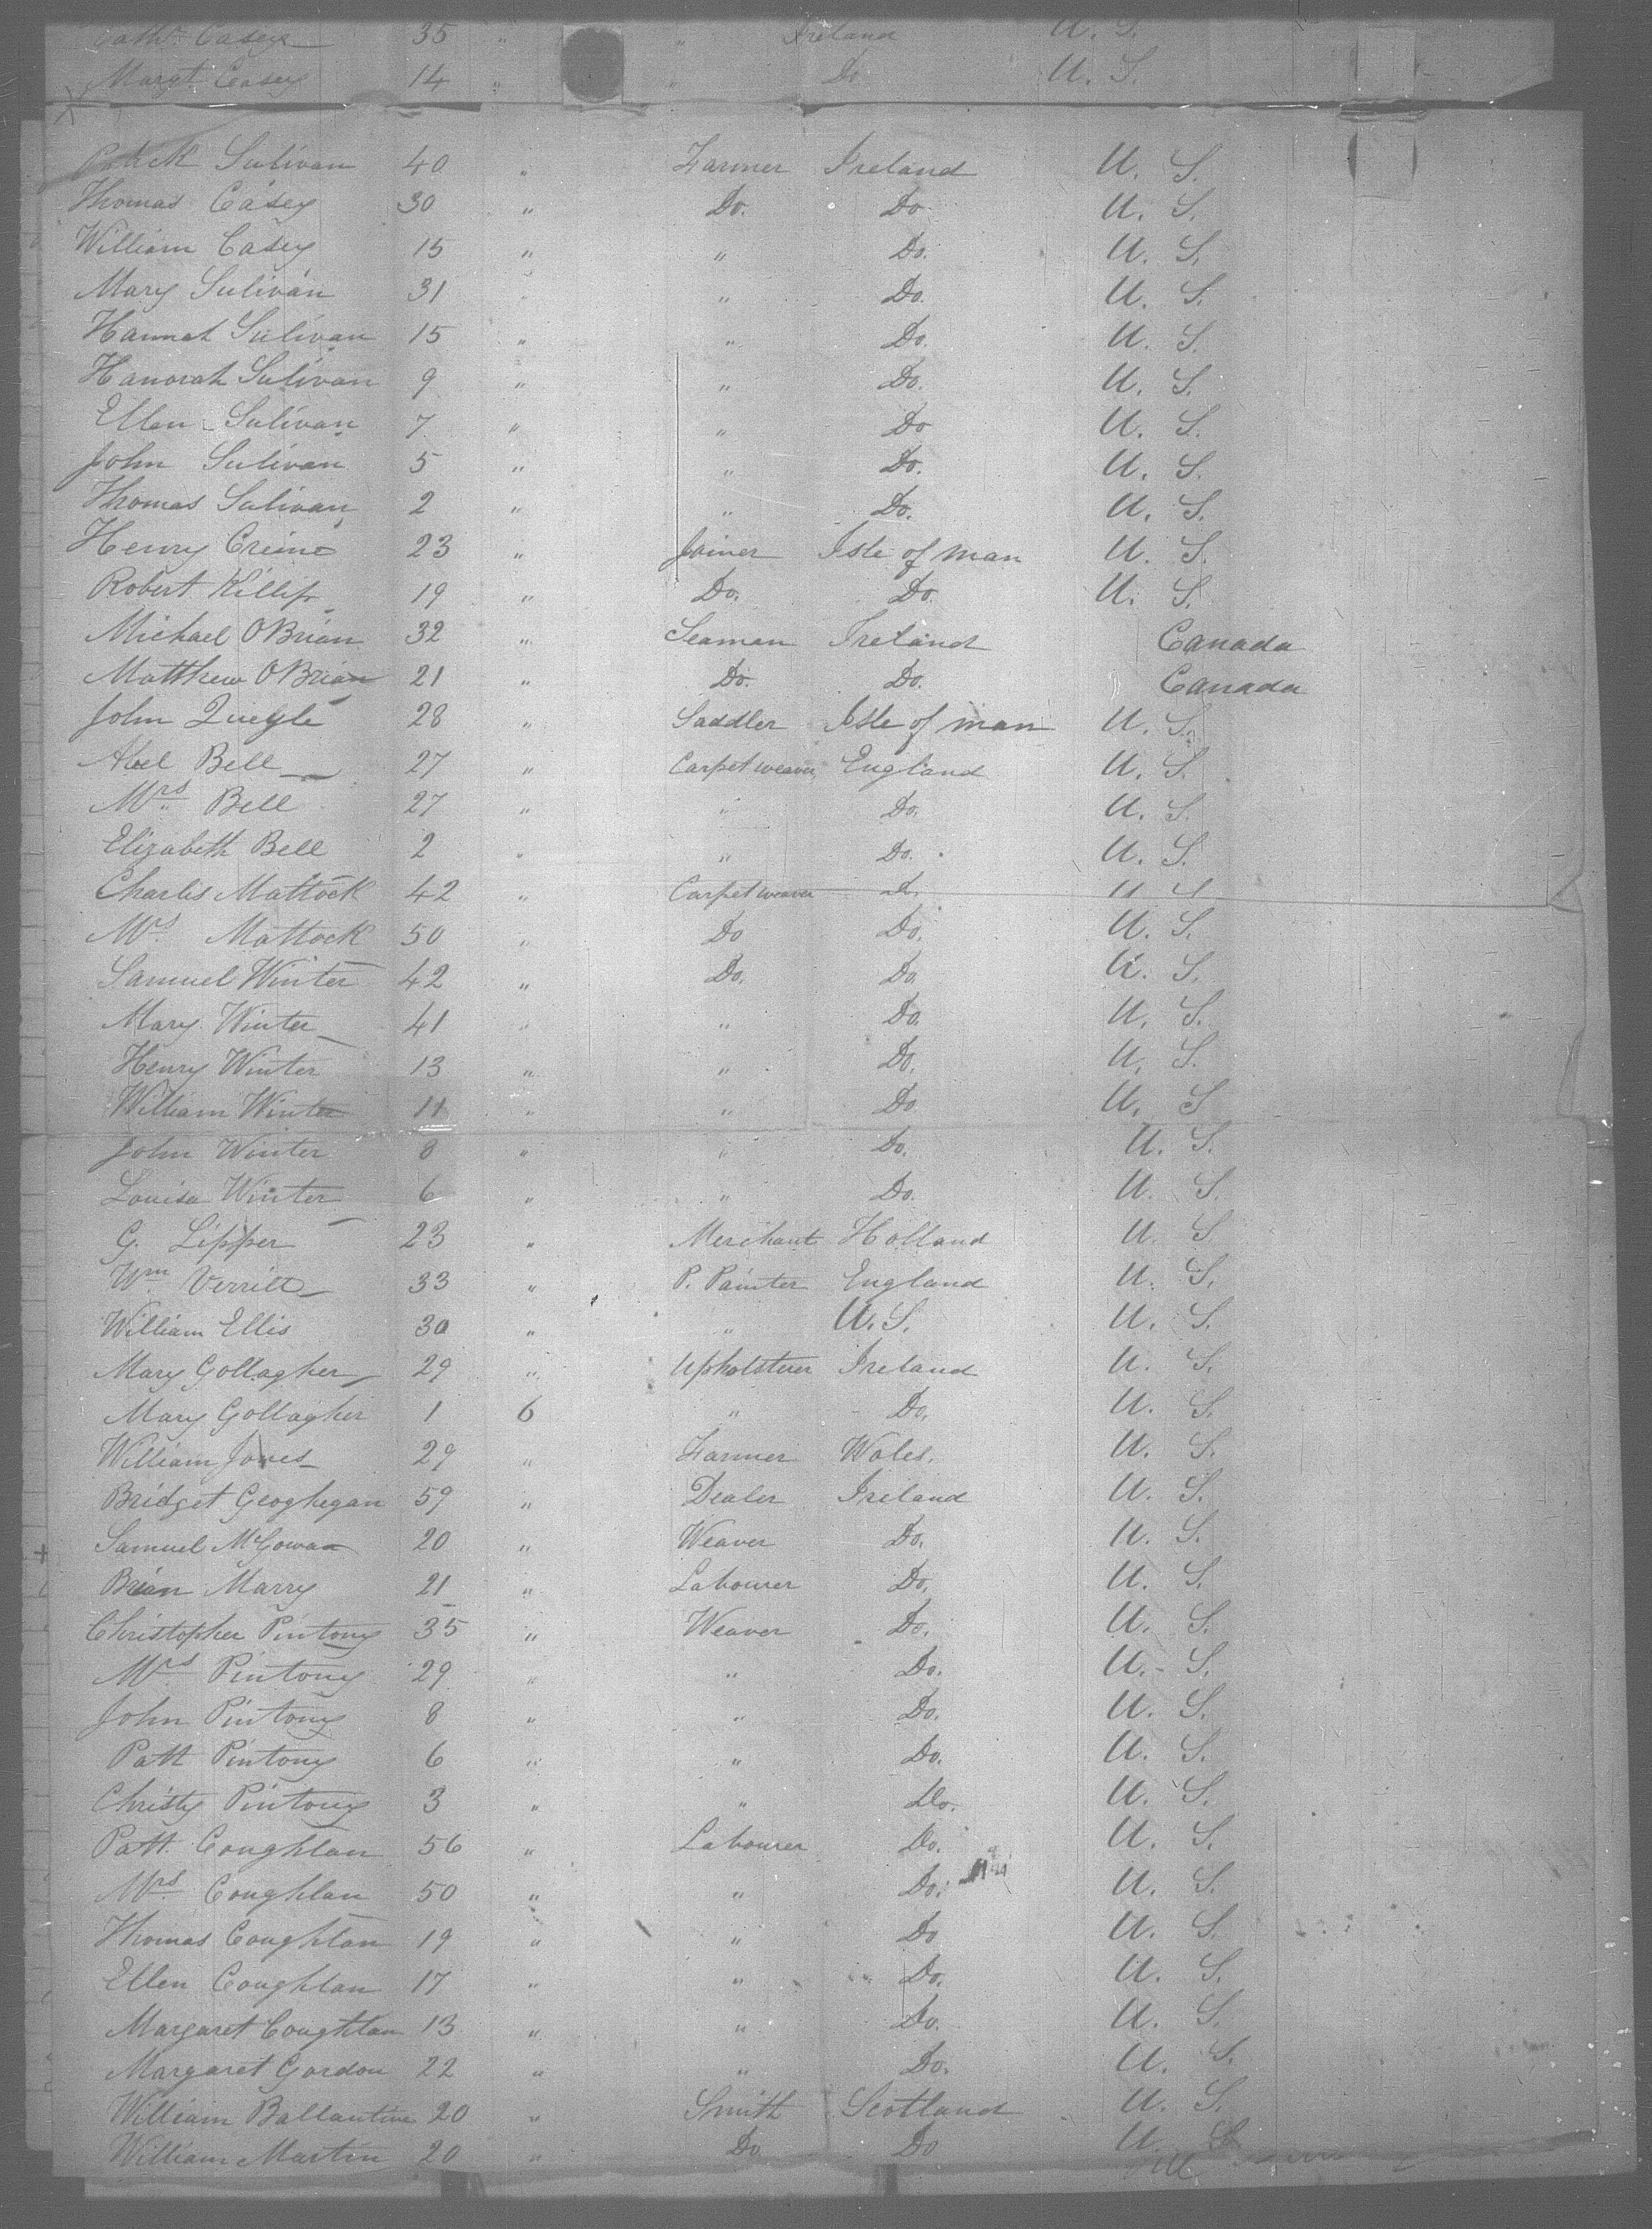 Cathe Casey 35 " " Ireland U. S.
Margt Casey 14 " " Do U. S.
Patrick Sulivan 40 " Farmer Ireland U. S.
Thomas Casey 30 " Do. Do U. S.
William Casey 15 " " Do. U. S.
Mary Sulivan 31 " " Do. U. S.
Hannah Sulivan 15 " " Do. U. S.
Hanorah Sulivan 9 " " Do. U. S.
Ellen Sulivan 7 " " Do U. S.
John Sulivan 5 " " Do. U. S.
Thomas Sulivan 2 " " Do. U. S.
Henry 23 " Joiner Isle of man U. S.
Robert Killip 19 " Do. Do. U. S.
Michael O'Brian 32 " Seaman Ireland Canada
Matthew O'Brian 21 " Do. Do. Canada
John Quegle 28 " Saddler Isle of man U. S.
Abel Bell 27 " Carpet weaver England U. S.
Mrs Bell 27 " " Do. U. S.
Elizabeth Bell 2 " " Do. U. S.
Charles Mattock 42 " Carpet weaver Do. U S
Mrs. Mattock 50 " Do Do. U. S.
Samuel Winter 42 " Do. Do. U. S.
Mary Winter 41 " " Do. U. S.
Henry Winter 13 " " Do. U. S.
William Winter 11 " " Do U. S
John Winter 8 " " Do. U. S.
Louisa Winter 6 " " Do. U. S.
G. Lipper 23 " Merchant Holland U. S
Wm. Verrill 33 " P. Painter England U. S.
William Ellis 30 " " U. S. U. S.
Mary Gollagher 29 " Upholsterer Ireland U. S.
Mary Gollagher 1 6 " Do. U. S.
William Jones 29 " Farmer Wales. U. S.
Bridget Geoghegan 59 " Dealer Ireland U. S.
Samuel McGowan 20 " Weaver Do. U. S.
Brian Marry 21 " Labourer Do. U. S.
Christopher Pintony 35 " Weaver Do. U. S.
Mrs Pintony 29 " " Do. U. S.
John Pintony 8 " " Do. U. S.
Patt Pintony 6 " " Do. U. S.
Christy Pintony 3 " " Do. U. S.
Patt. Coughlan 56 " Labourer Do. U. S.
Mrs Coughlan 50 " " Do. U. S.
Thomas Coughlan 19 " " Do U. S.
Ellen Coughlan 17 " " Do. U. S.
Margaret Coughlan 13 " " Do. U. S.
Margaret Gordon 22 " " Do. U. S.
William Ballantine 20 " Smith Scotland U. S.
William Martin 20 " Do Do U. S